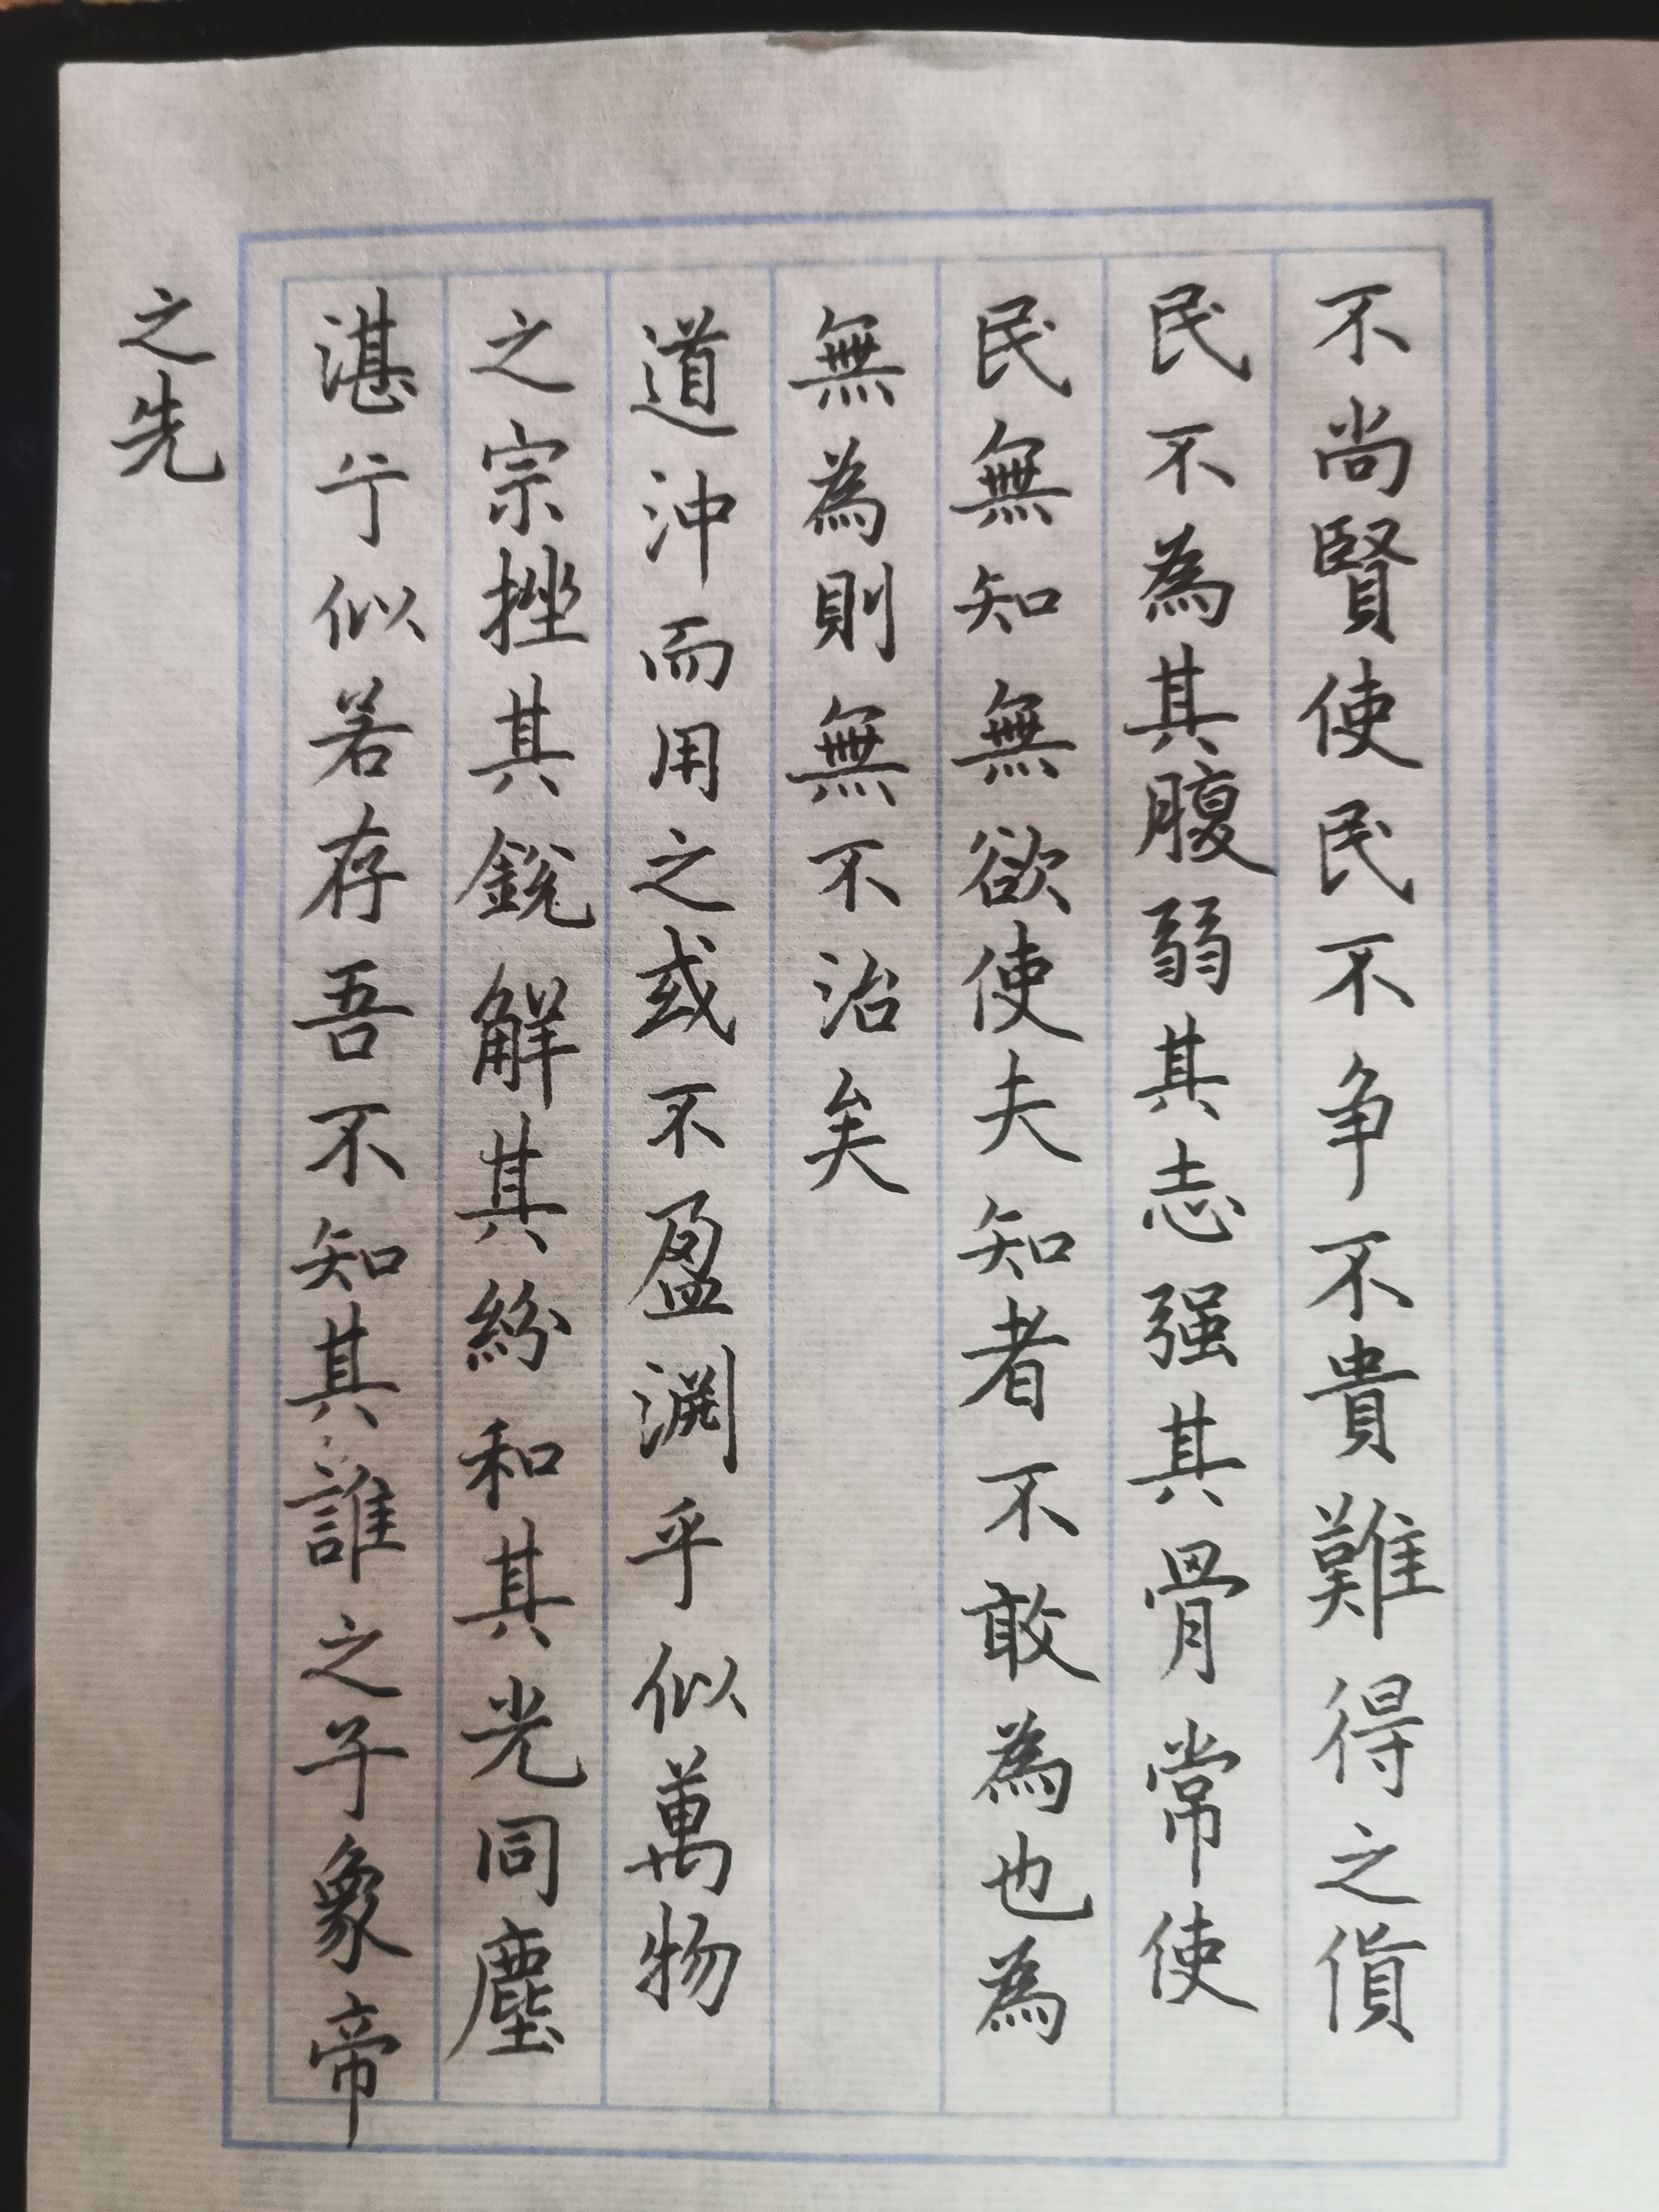 不尚賢使民不争不貴難得之貨
民不為其腹弱其志强其骨常使
民無知無欲使夫知者不敢為也為
無為則無不治矣
道沖而用之或不盈淵乎似萬物
之宗挫其銳解其紛和其光同塵
湛兮似若存吾不知其誰之子象帝
之先